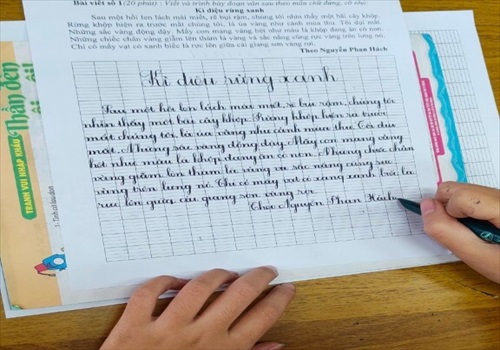 Bài viết số 1(20 phút) : Viết và trình bày đoạn văn sau theo mẫu chữ đứng, cỡ nhỏ:
Kì diệu rừng xanh
Sau một hồi len lách mải miết, rẽ bụi rậm, chúng tôi nhìn thấy một bãi cây khộp.
Rừng khộp hiện ra trước mắt chúng tôi, lá úa vàng như cảnh mùa thu. Tôi dụi mắt.
Những sắc vàng động đậy. Mấy con mang vàng hệt như màu lá khộp đang ăn cỏ non.
Những chiếc chân vàng giẫm lên thảm lá vàng và sắc nắng cũng rực vàng trên lưng nó.
Chỉ có mấy vạt cỏ xanh biếc là rực lên giữa cái giang sơn vàng rợi.
Theo Nguyễn Phan Hách
Kì diệu rừng xanh
Sau một hồi len lách mải miết, rẽ bụi rậm, chúng tôi
nhìn thấy một bãi cây khộp. Rừng khộp hiện ra trước
mắt chúng tôi, lá úa vàng như cảnh mùa thu. Tôi dụi
mắt. Những sắc vàng động đậy. Mấy con mang vàng
hệt như màu lá khộp đang ăn cỏ non. Những chiếc chân
vàng giẫm lên thảm lá vàng và sắc nắng cũng rực
vàng trên lưng nó. Chỉ có mấy vạt cỏ xanh biếc là
rực lên giữa cái giang sơn vàng rợi.
Theo Nguyễn Phan Hách
Thần đèn
TRANH VUI NHẬP KHẨU